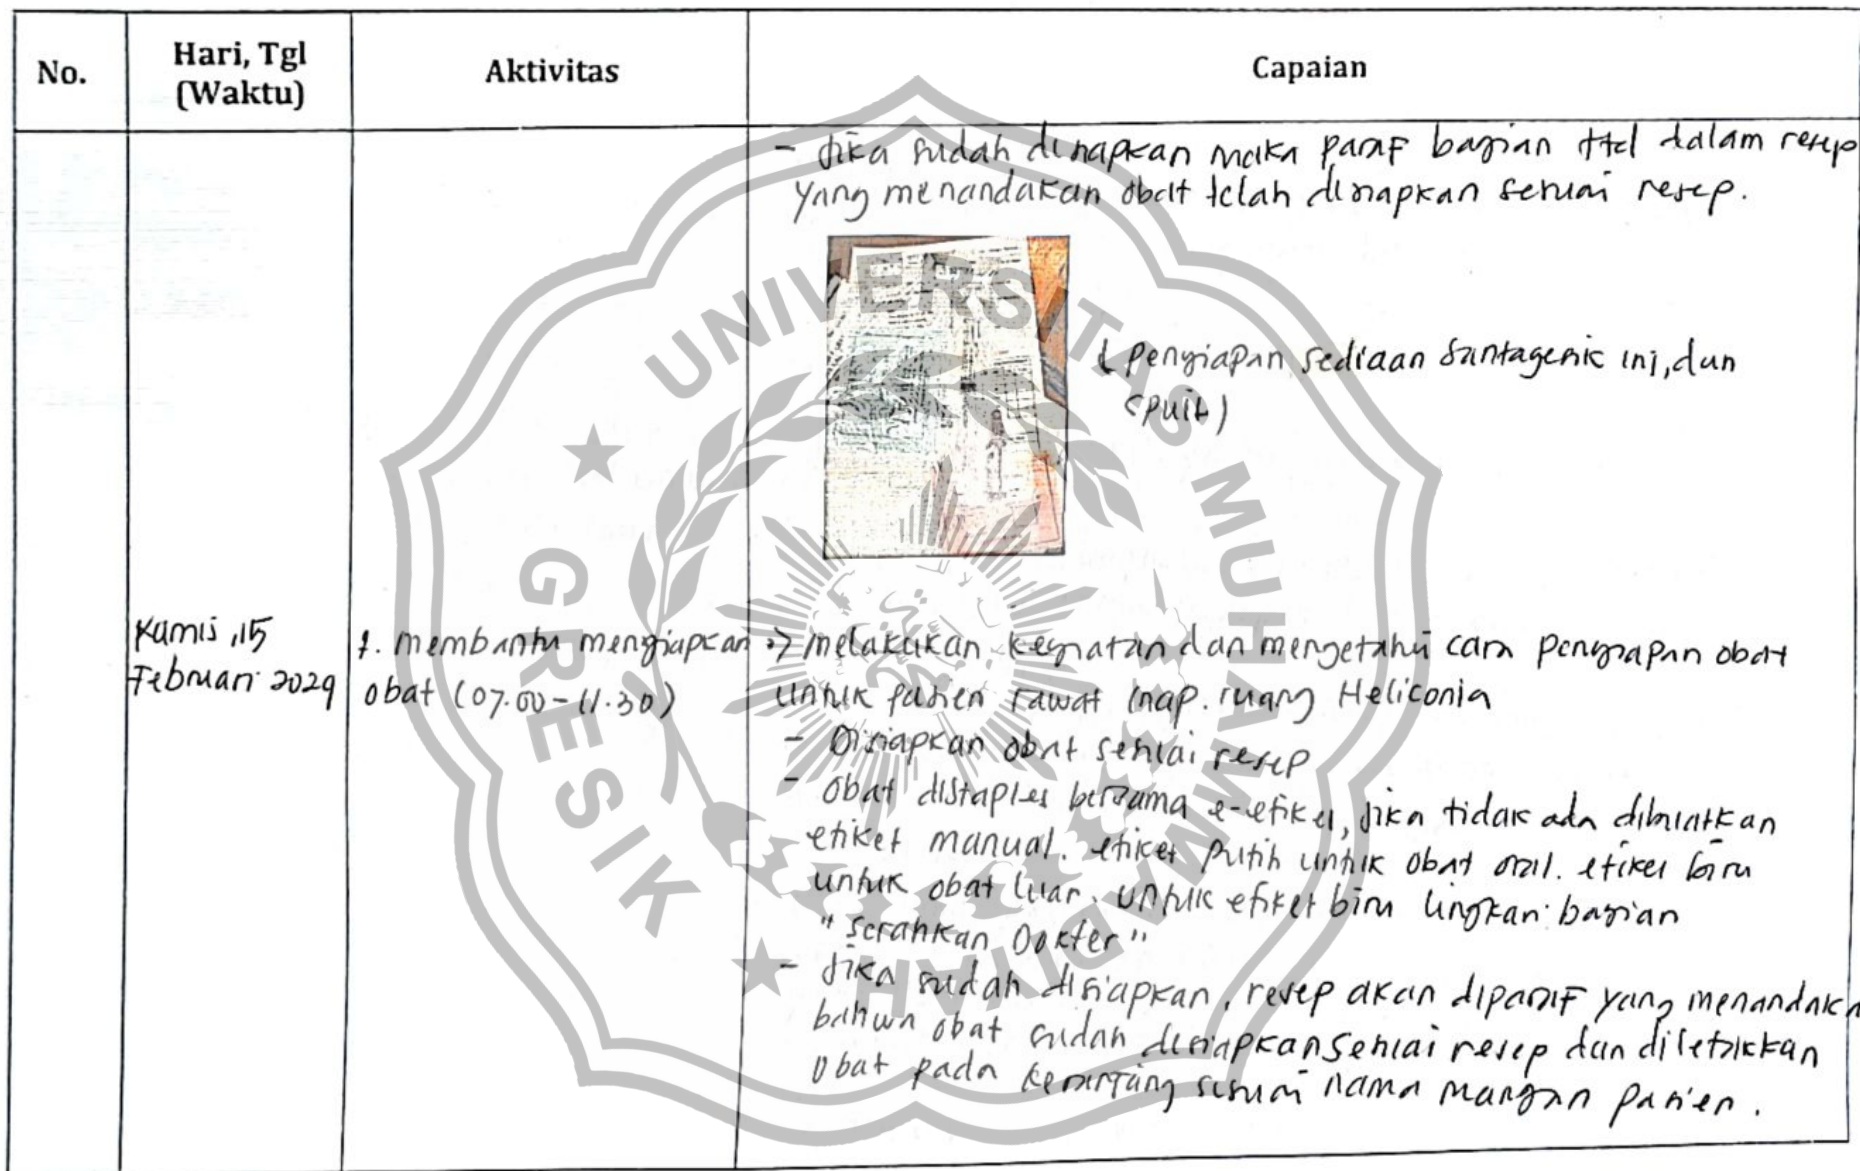 No.
Hari, Tgl
(Waktu)
Aktivitas
Capaian
- Jika sudah disiapkan maka paraf bagian ttd dalam resep
yang menandakan obat telah disiapkan sesuai resep.
(Penyiapan sediaan Santagesik inj, dan
spuit)
Kamis, 15
Februari 2024
1. membantu mengiapkan
obat (07.00-11.30)
=> melakukan kegiatan dan mengetahui cara penyiapan obat
untuk pasien rawat inap. ruang Heliconia
- Disiapkan obat sesuai resep
- obat distaples bersama e-etiket, jika tidak ada dibuatkan
etiket manual. etiket putih untuk obat oral. etiket biru
untuk obat luar. untuk etiket biru lingkari bagian
"Serahkan Dokter"
- Jika sudah disiapkan, resep akan diparaf yang menandakan
bahwa obat sudah disiapkan sesuai resep dan diletakkan
obat pada keranjang sesuai nama ruangan pasien.
UNIVERSITAS MUHAMMADIYAH
GRESIK